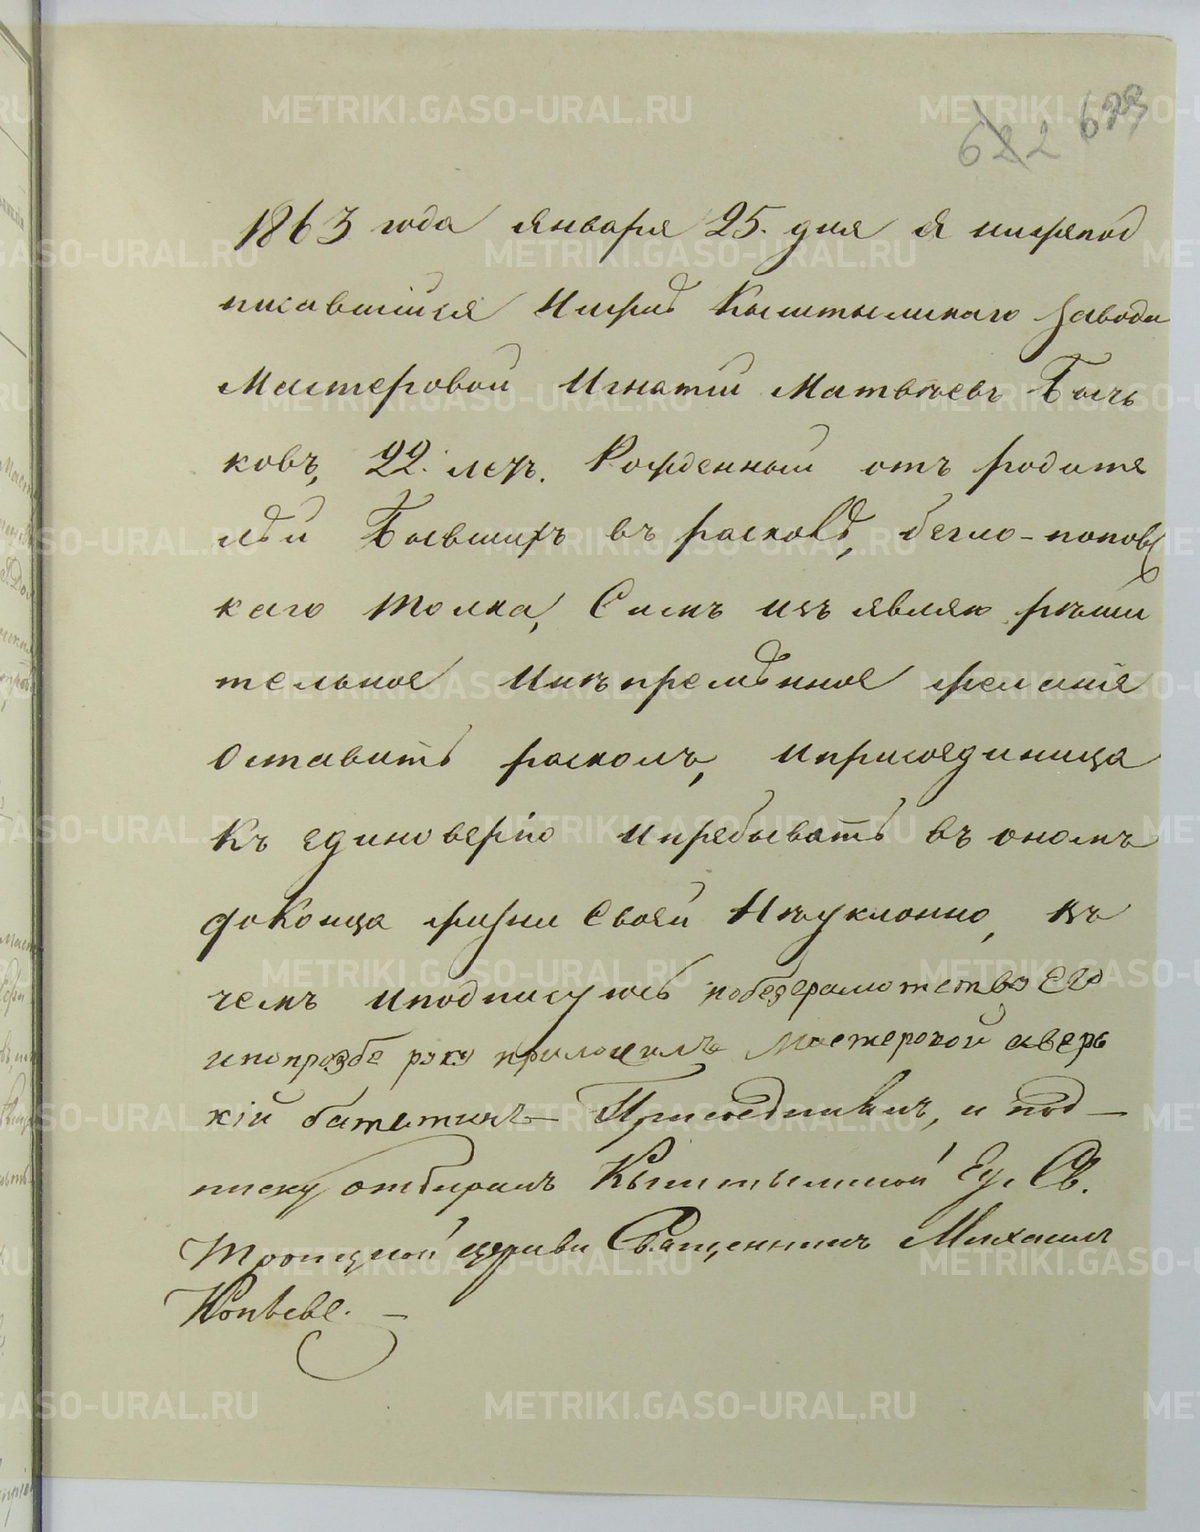 622 623
1863 года Января 25. дня Я нижепод
писавшійся Нижнѣ Кыштымскаго завода
Мастеровой Игнатій Матвѣевъ Быч
ковъ, 22. летъ. Рожденный отъ родите
лѣй Бывшихъ въ расколѣ, бегло-поповс
каго толка, Симъ изъ являю рѣши
тельное Инѣпремѣнное желаніе
Оставить расколъ, иприсоединица
Къ единоверію ипребывать въ ономъ
доКонца жизни Своей Нѣуклонно, въ
чемъ иподписуюсь побезграмотству Его
ипопрозбе руку приложилъ Мастеровой аверь
кій Присоединилъ, и под—
писку отбиралъ Кыштымской Ед. Св.
Троицкой церкви Священникъ Михаилъ
METRIKI.GASO-URAL.RU